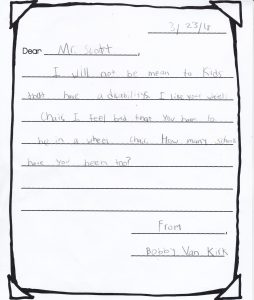 3/23/16
Dear Mr. Scott,
I will not be mean to Kids
that have a disability. I like your weel
Chair. I feel bad that you have to
be in a wheel chair. How many schools
have you been too?
From,
Bobby Van Kirk